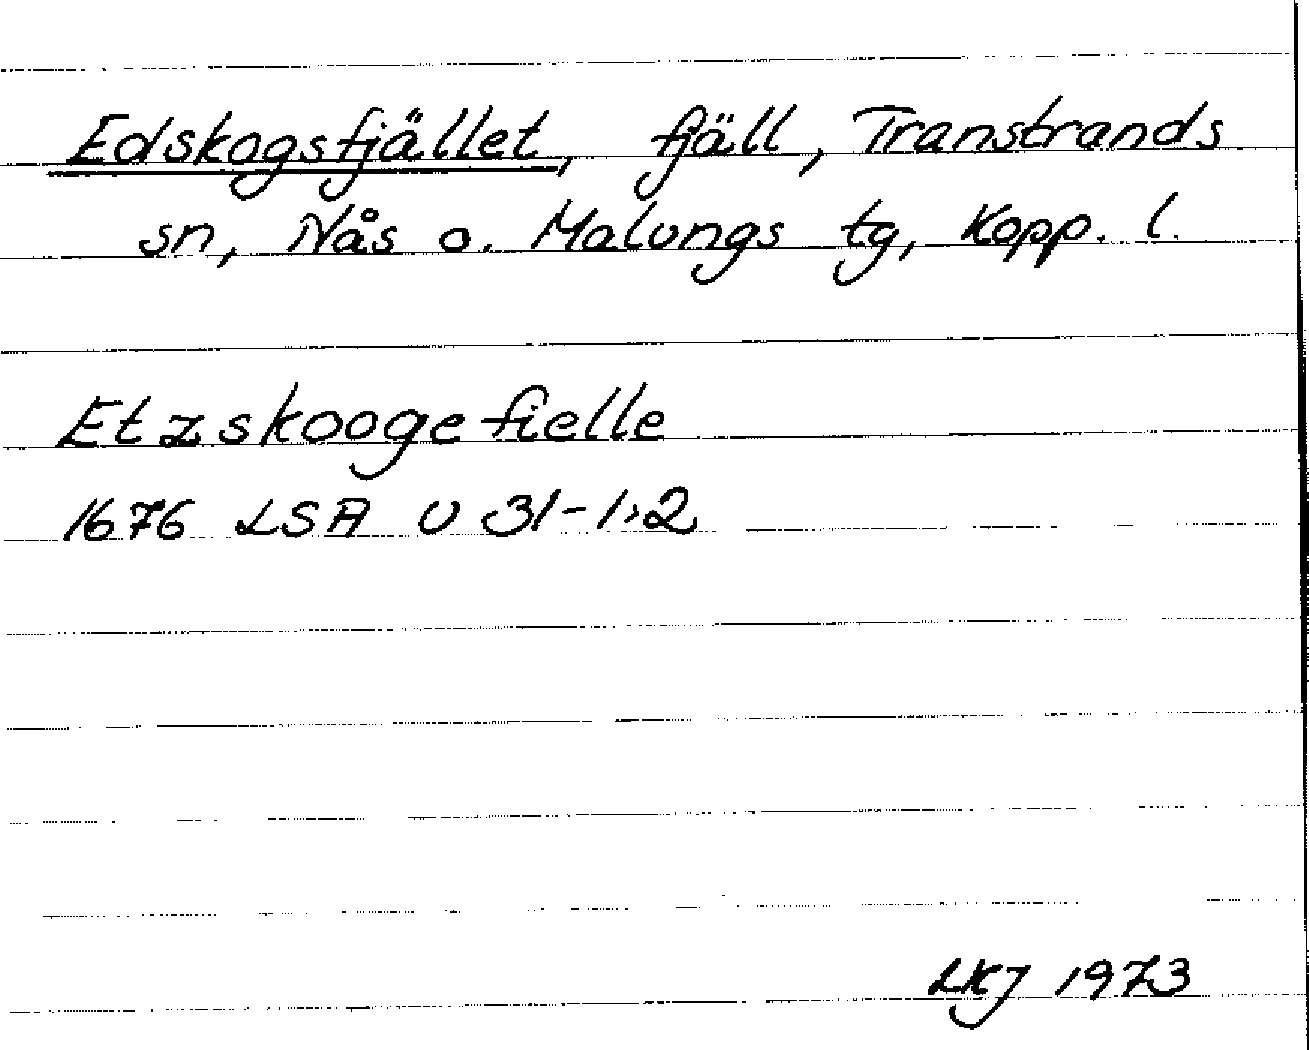 Edskogsfjället, fjäll, Transtrands
sn, Nås o. Malungs tg, Kopp. l.
Etzskooge fielle
1676 LSA U 31-1:2
LKJ 1973